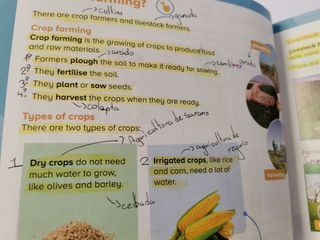 farming?
→ cultivo → ganado
There are crop farmers and livestock farmers.
Crop farming
Crop farming is the growing of crops to produce food
and raw materials. → arado
1º Farmers plough the soil to make it ready for sowing.
→ sembrar
2º They fertilise the soil.
3º They plant or sow seeds.
4º They harvest the crops when they are ready.
Types of crops
There are two types of crops.
→ Agricultura de secano
→ agricultura de regadío
1 Dry crops do not need
much water to grow,
like olives and barley.
→ cebada
2 Irrigated crops, like rice
and corn, need a lot of
water.